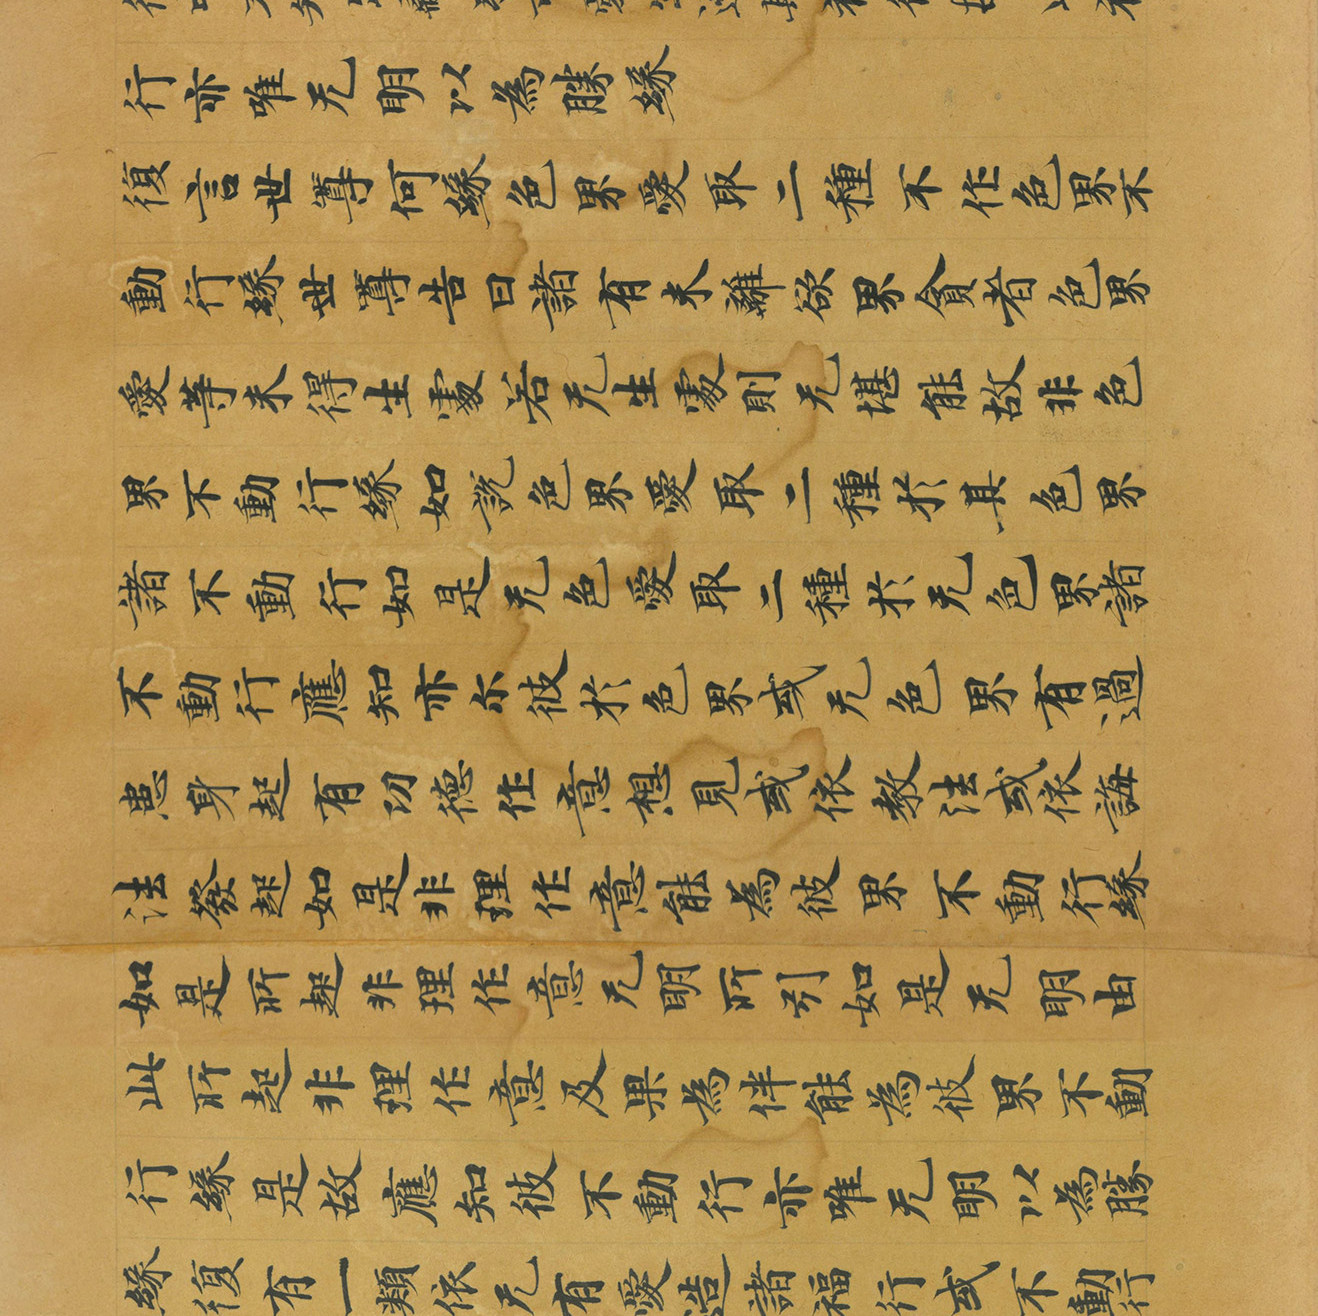 行亦唯无明以為勝緣
復言世尊何緣色界愛取二種不作色界不
動行緣世尊告曰諸有未離欲界貪者色界
愛等未得生處若无生處則无堪能故非色
界不動行緣如說色界愛取二種於其色界
諸不動行如是无色愛取二種於无色界諸
不動行應知亦尔彼於色界或无色界有過
患身起有功德作意想見或依教法或依誨
法發起如是非理作意能為彼界不動行緣
如是所起非理作意无明所引如是无明由
此所起非理作意及果為伴能為彼界不動
行緣是故應知彼不動行亦唯无明以為勝
緣復有一類依无有愛造諸福行或不動行